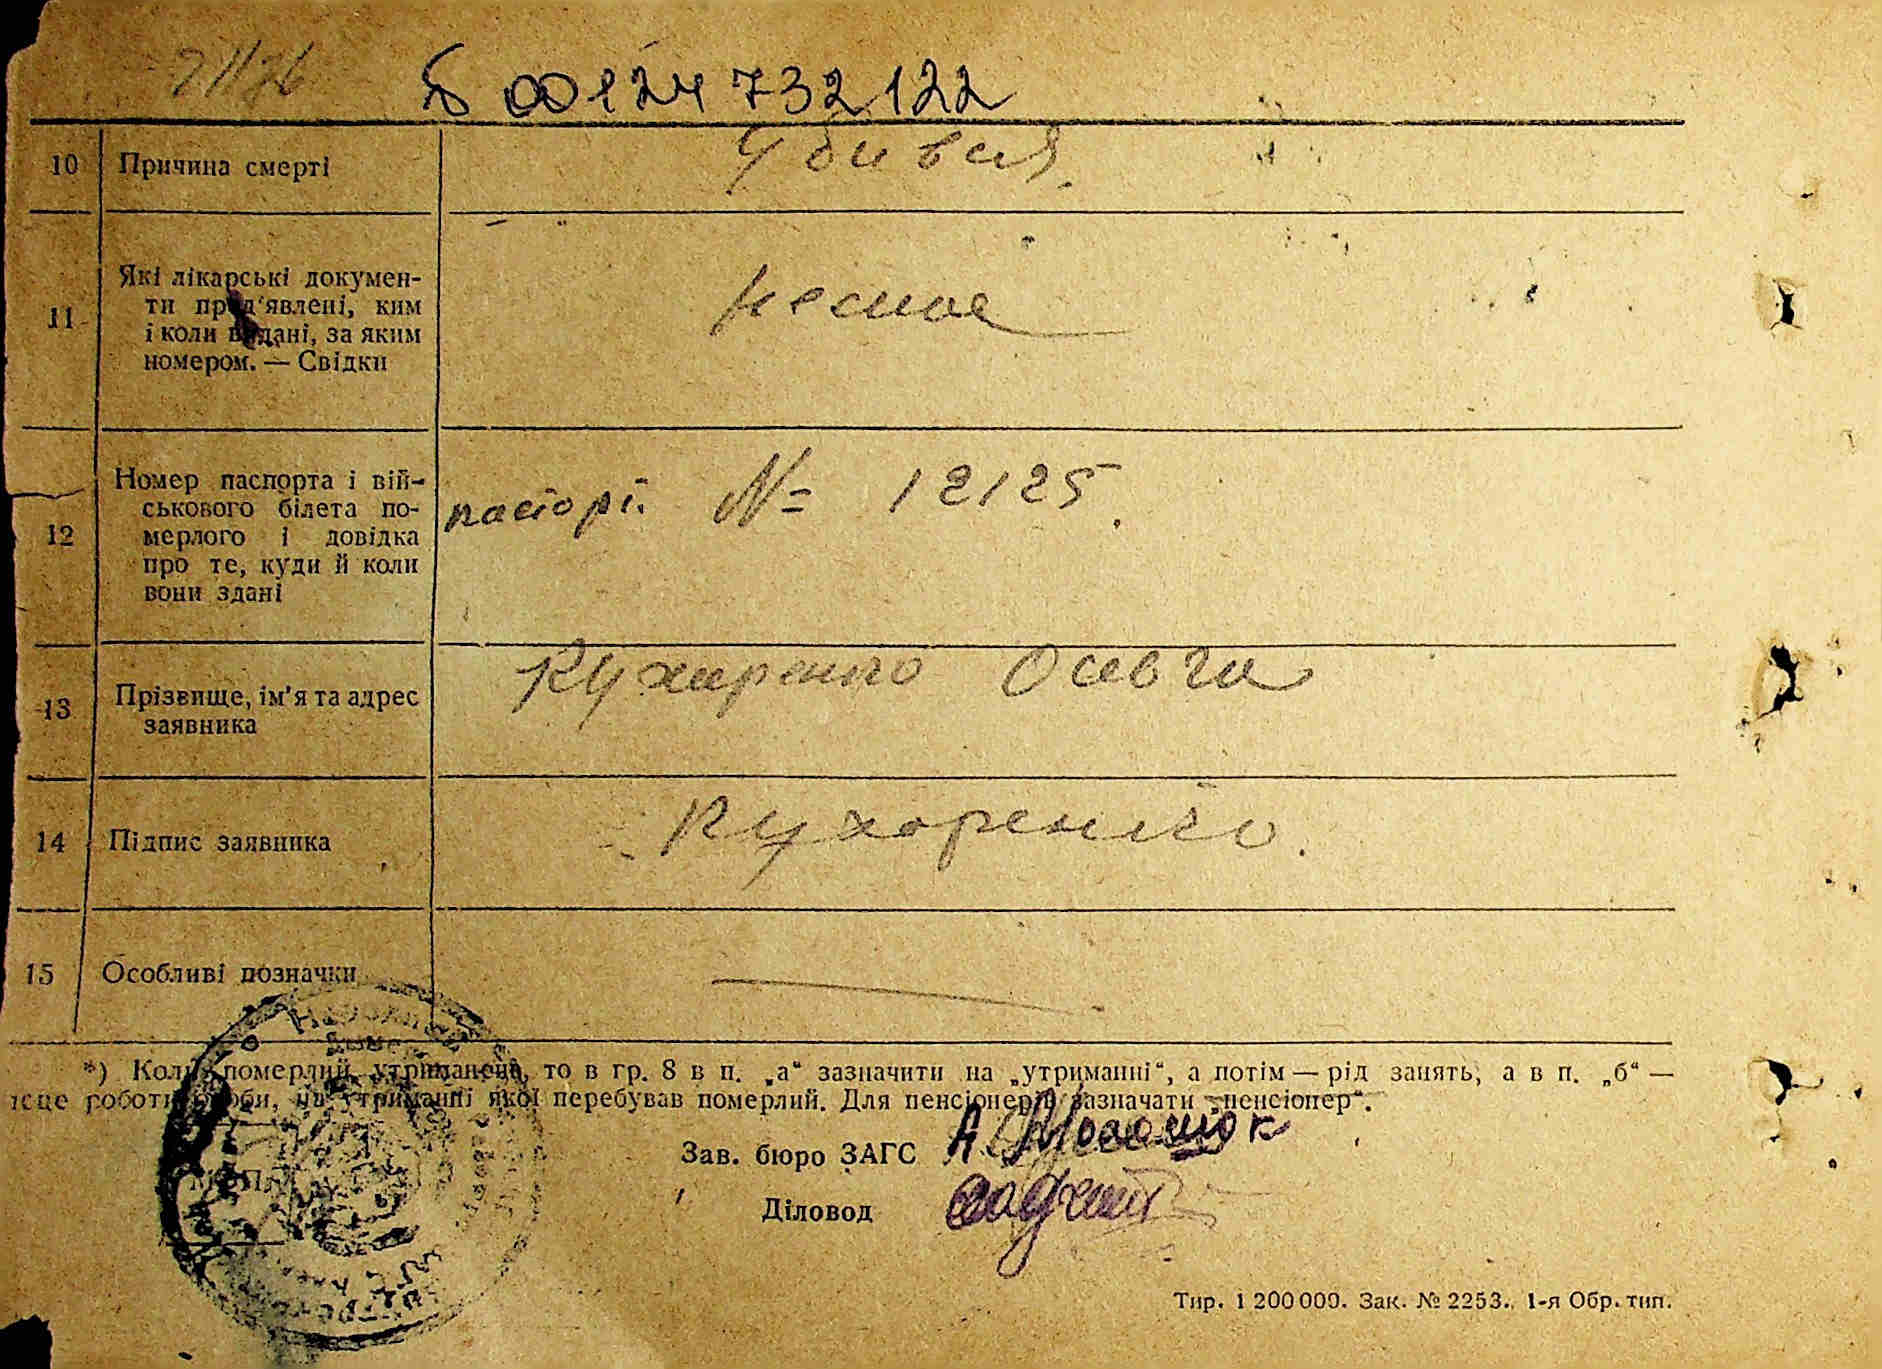 Б 00124 732 122
10 Причина смерті
11 Які лікарські докумен-
ти пред'явлені, ким
і коли видані, за яким
номером. — Свідки
12 Номер паспорта і вій-
ськового білета по-
мерлого і довідка
про те, куди й коли
вони здані
паспорт. № 12125.
13 Прізвище, ім'я та адрес
заявника
Кухаренко Ольга
14 Підпис заявника
Кухоренко.
15 Особливі позначки
*) Коли померлий утриманець, то в гр. 8 в п. „а“ зазначити на „утриманні“, а потім — рід занять, а в п. „б“ —
роботи особи, на утриманні якої перебував померлий. Для пенсіонерів зазначати „пенсіонер“.
Зав. бюро ЗАГС
М. П.
Діловод
Тир. 1 200 000. Зак. № 2253. 1-я Обр. тип.